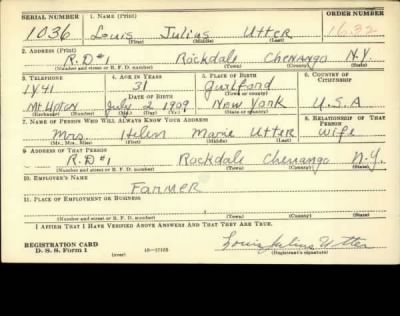 SERIAL NUMBER 1. NAME (Print) ORDER NUMBER
1036 Louis Julius Utter 1632
(First) (Middle) (Last)
2. ADDRESS (Print)
R.D #1 Rockdale Chenango N.Y.
(Number and street or R. F. D. number) (Town) (County) (State)
3. TELEPHONE 4. AGE IN YEARS 5. PLACE OF BIRTH 6. COUNTRY OF CITIZENSHIP
31 Guilford
DATE OF BIRTH (Town or county)
Mt Upton July 2 1909 New York U.S.A
7. NAME OF PERSON WHO WILL ALWAYS KNOW YOUR ADDRESS 8. RELATIONSHIP OF THAT PERSON
Mrs. Helen Marie Utter wife
(Mr., Mrs., Miss) (First) (Middle) (Last)
9. ADDRESS OF THAT PERSON
R.D #1 Rockdale Chenango N.Y.
(Number and street or R. F. D. number) (Town) (County) (State)
10. EMPLOYER'S NAME
FARMER
11. PLACE OF EMPLOYMENT OR BUSINESS
(Number and street or R. F. D. number) (Town) (County) (State)
I AFFIRM THAT I HAVE VERIFIED ABOVE ANSWERS AND THAT THEY ARE TRUE.
REGISTRATION CARD Louis Julius Utter
D. S. S. Form 1 (over) (Registrant's signature)